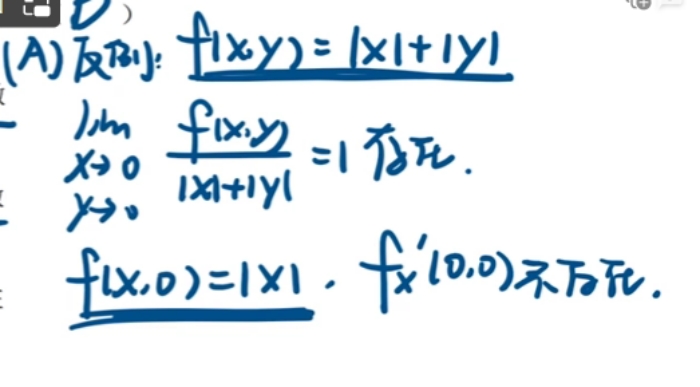 D )
(A) 反例: f(x,y) = |x|+|y|
lim x→0 y→0 f(x,y)/(|x|+|y|) = 1 存在.
f(x,0) = |x|. fx'(0,0) 不存在.